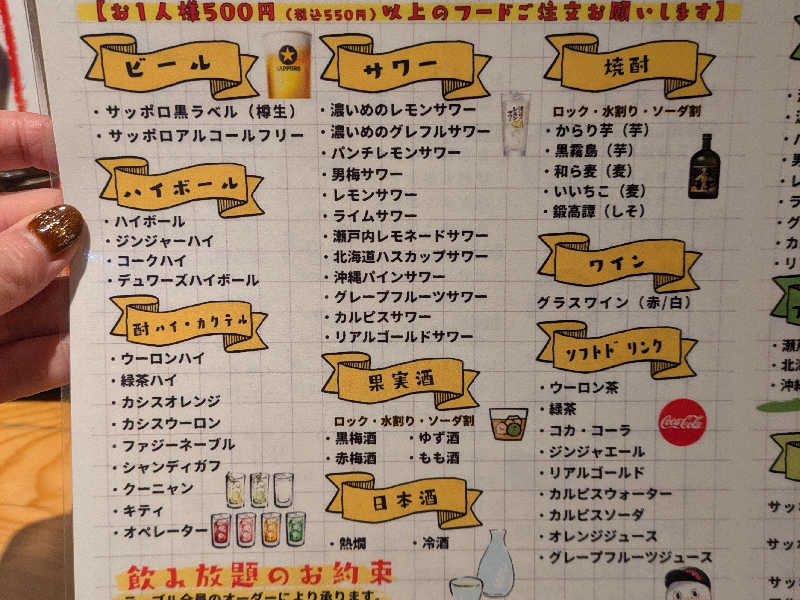 【お1人様500円（税込550円）以上のフードご注文お願いします】
ビール
・サッポロ黒ラベル（樽生）
・サッポロアルコールフリー
SAPPORO
ハイボール
・ハイボール
・ジンジャーハイ
・コークハイ
・デュワーズハイボール
酎ハイ・カクテル
・ウーロンハイ
・緑茶ハイ
・カシスオレンジ
・カシスウーロン
・ファジーネーブル
・シャンディガフ
・クーニャン
・キティ
・オペレーター
サワー
・濃いめのレモンサワー
・濃いめのグレフルサワー
・パンチレモンサワー
・男梅サワー
・レモンサワー
・ライムサワー
・瀬戸内レモネードサワー
・北海道ハスカップサワー
・沖縄パインサワー
・グレープフルーツサワー
・カルピスサワー
・リアルゴールドサワー
果実酒
ロック・水割り・ソーダ割
・黒梅酒 ・ゆず酒
・赤梅酒 ・もも酒
日本酒
・熱燗 ・冷酒
焼酎
ロック・水割り・ソーダ割
・からり芋（芋）
・黒霧島（芋）
・和ら麦（麦）
・いいちこ（麦）
・鍛高譚（しそ）
ワイン
グラスワイン（赤/白）
ソフトドリンク
・ウーロン茶
・緑茶
・コカ・コーラ
・ジンジャエール
・リアルゴールド
・カルピスウォーター
・カルピスソーダ
・オレンジジュース
・グレープフルーツジュース
Coca-Cola
飲み放題のお約束
テーブル全員のオーダーにより承ります。